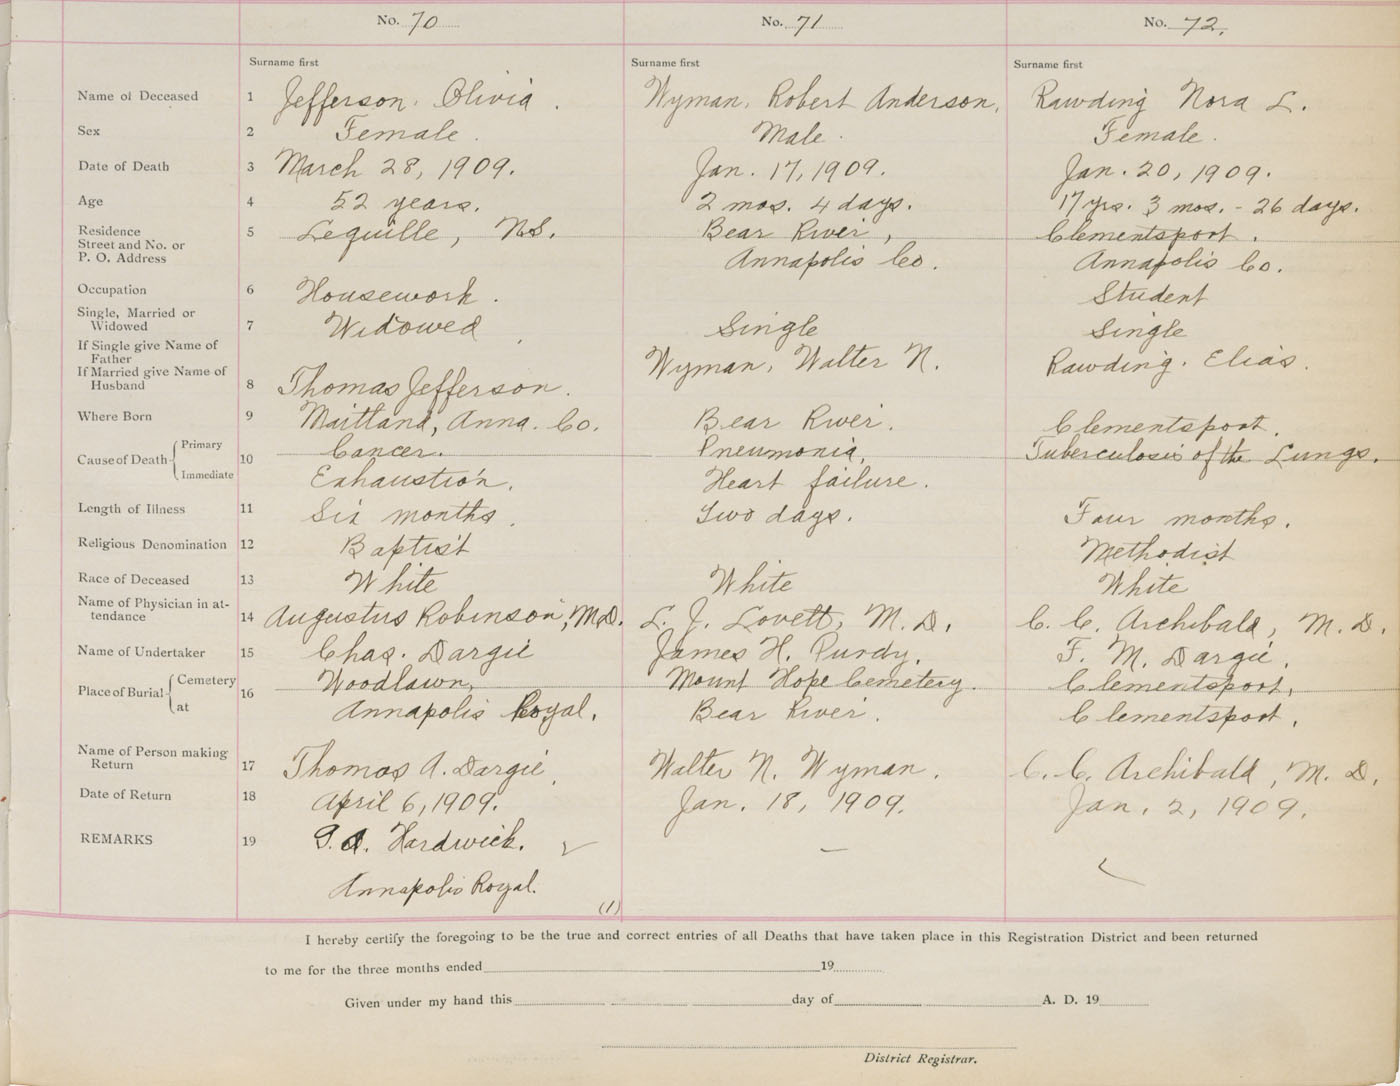 No. 70 No. 71 No. 72.
Surname first Surname first Surname first
Name of Deceased 1 Jefferson, Olivia. Wyman, Robert Anderson, Rawding Nora L.
Sex 2 Female. Male. Female.
Date of Death 3 March 28, 1909. Jan. 17, 1909. Jan. 20, 1909.
Age 4 52 years. 2 mos. 4 days. 17 yrs. 3 mos. - 26 days.
Residence 5 Lequille, N.S. Bear River, Clementsport.
Street and No. or
P. O. Address Annapolis Co. Annapolis Co.
Occupation 6 Housework. Student
Single, Married or
Widowed 7 Widowed Single Single
If Single give Name of
Father Wyman, Walter N. Rawding. Elias.
If Married give Name of
Husband 8 Thomas Jefferson.
Where Born 9 Maitland, Anna. Co. Bear River. Clementsport.
Cause of Death Primary 10 Cancer. Pneumonia, Tuberculosis of the Lungs.
Immediate Exhaustion. Heart failure.
Length of Illness 11 Six months. Two days. Four months.
Religious Denomination 12 Baptist Methodist
Race of Deceased 13 White White White
Name of Physician in at-
tendance 14 Augustus Robinson, M.D. L. J. Lovett, M.D. C. C. Archibald, M.D.
Name of Undertaker 15 Chas. Dargie James H. Purdy. F. M. Dargie.
Place of Burial Cemetery 16 Woodlawn, Mount Hope Cemetery. Clementsport.
at Annapolis Royal. Bear River. Clementsport.
Name of Person making
Return 17 Thomas A. Dargie, Walter N. Wyman. C. C. Archibald, M.D.
Date of Return 18 April 6, 1909. Jan. 18, 1909. Jan. 2, 1909.
REMARKS 19 Hardwick. —
Annapolis Royal.
(1)
I hereby certify the foregoing to be the true and correct entries of all Deaths that have taken place in this Registration District and been returned
to me for the three months ended 19
Given under my hand this day of A. D. 19
District Registrar.